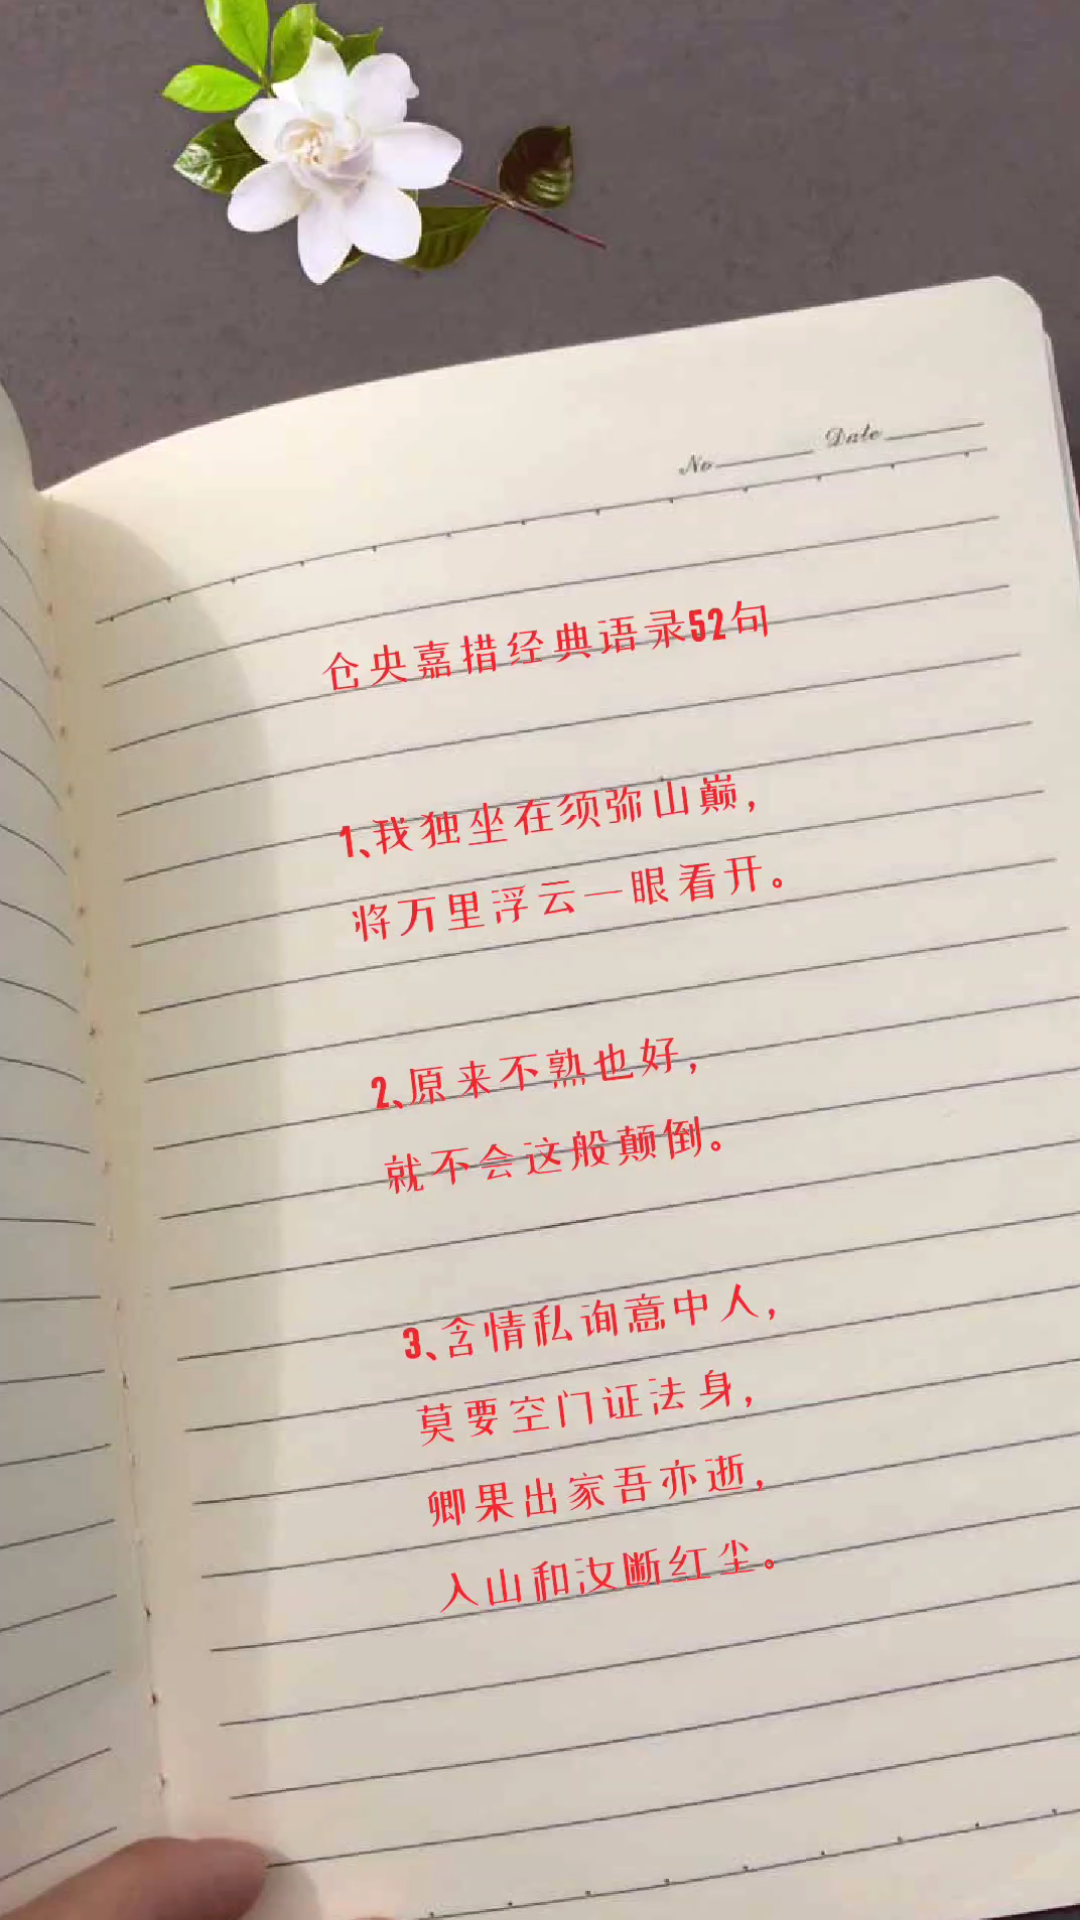 No Date
仓央嘉措经典语录52句
1、我独坐在须弥山巅，
将万里浮云一眼看开。
2、原来不熟也好，
就不会这般颠倒。
3、含情私询意中人，
莫要空门证法身，
卿果出家吾亦逝，
入山和汝断红尘。